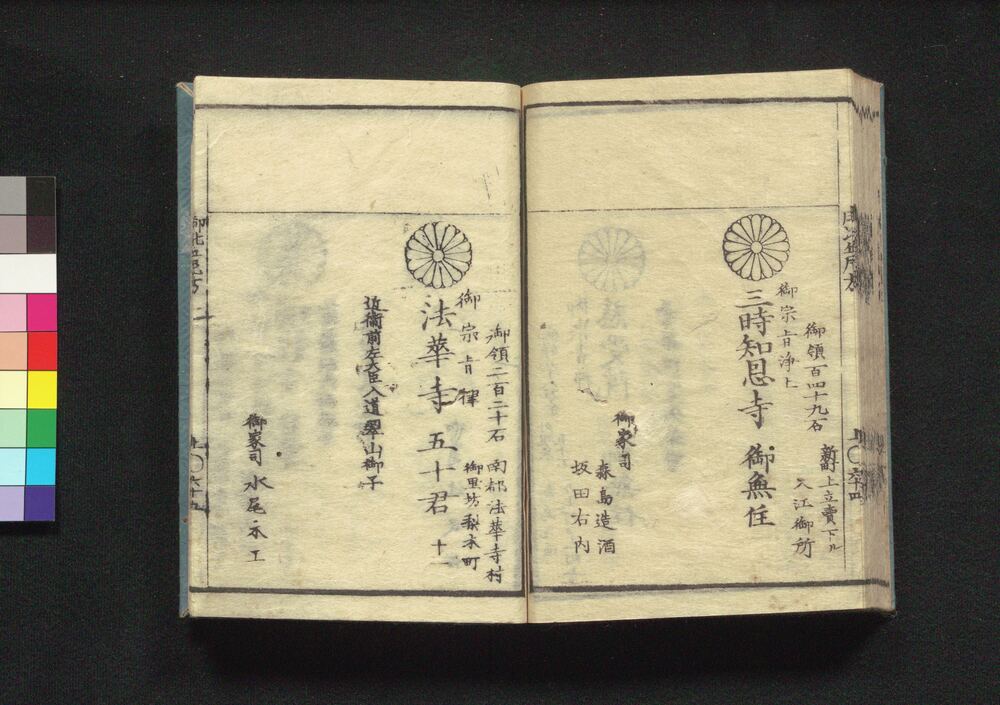 御領百四十九石
新町上立賣下ル
入江御所
御宗旨浄土
三時知恩寺 御無住
御家司
森島造酒
坂田右内
御領二百二十石
南都法華寺村
御里坊梨木町
御宗旨律
法華寺 五十君 十一
近衛前左大臣入道翠山御子
御家司 水尾木工